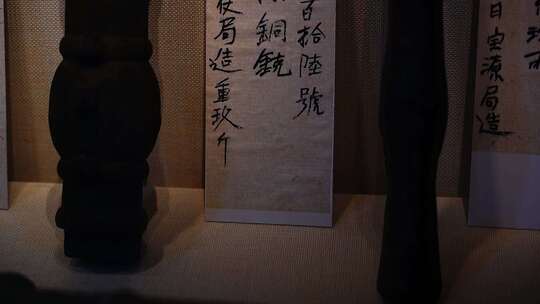 百拾陸號
銅銃
使局造重玖斤
日宝源局造